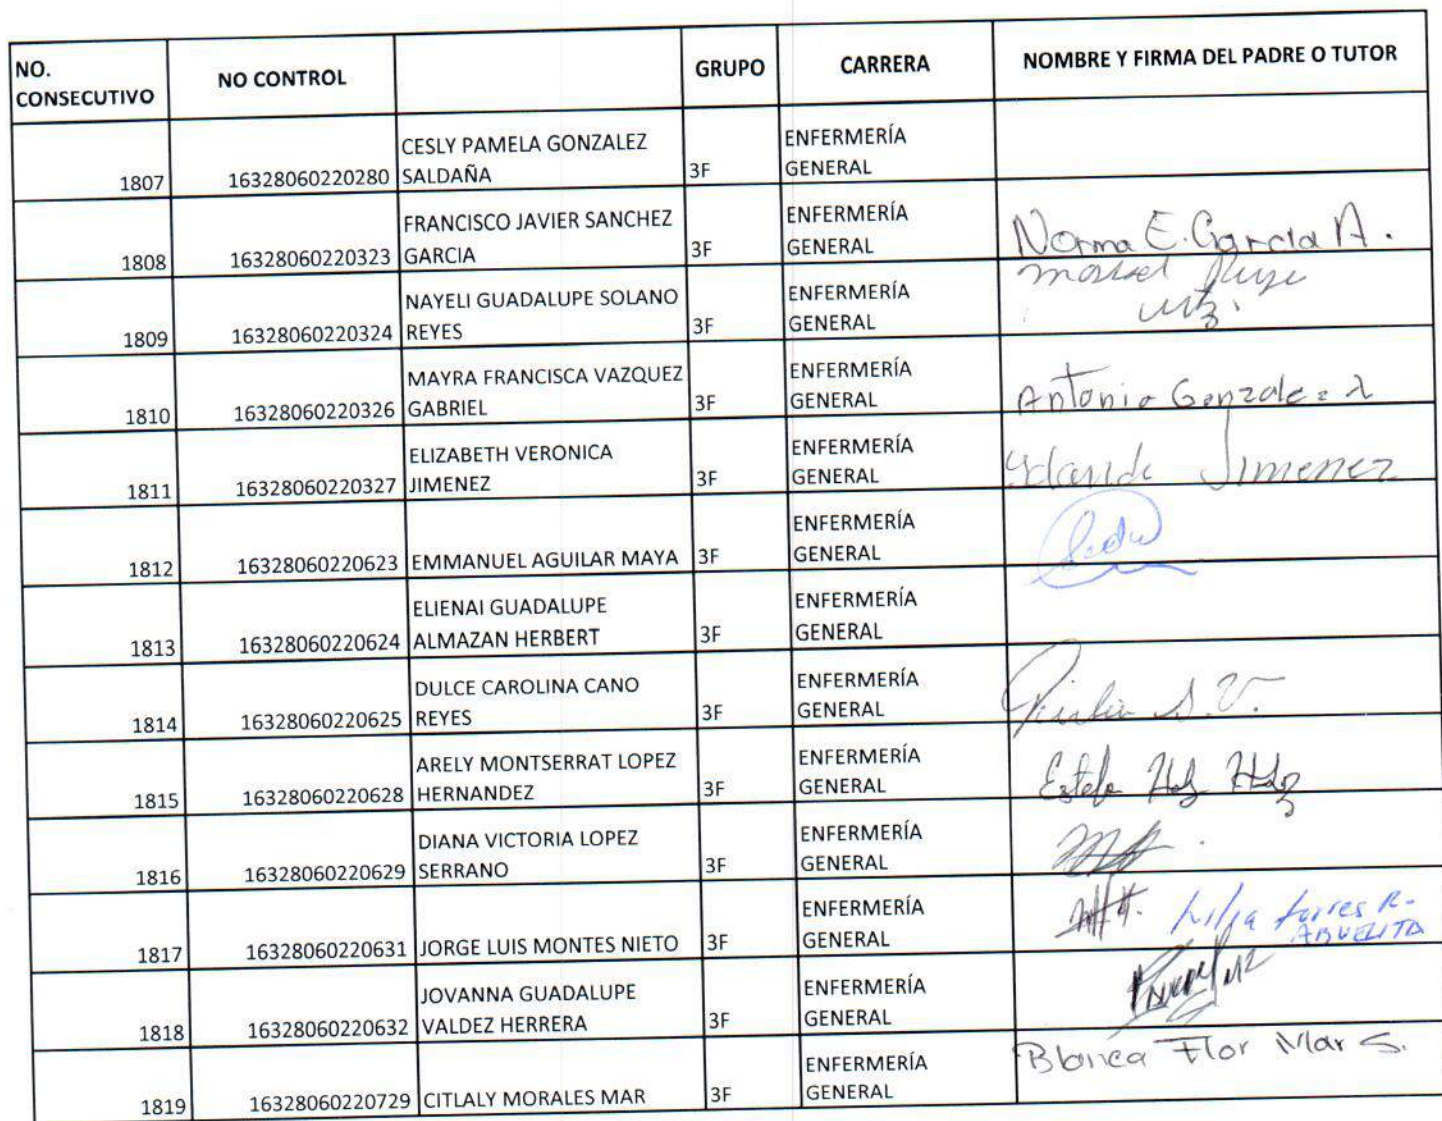 NO. CONSECUTIVO NO CONTROL GRUPO CARRERA NOMBRE Y FIRMA DEL PADRE O TUTOR
1807 16328060220280 CESLY PAMELA GONZALEZ SALDAÑA 3F ENFERMERÍA GENERAL
1808 16328060220323 FRANCISCO JAVIER SANCHEZ GARCIA 3F ENFERMERÍA GENERAL Norma E. Garcia A.
1809 16328060220324 NAYELI GUADALUPE SOLANO REYES 3F ENFERMERÍA GENERAL
1810 16328060220326 MAYRA FRANCISCA VAZQUEZ GABRIEL 3F ENFERMERÍA GENERAL Antonio Gonzalez
1811 16328060220327 ELIZABETH VERONICA JIMENEZ 3F ENFERMERÍA GENERAL Jimenez
1812 16328060220623 EMMANUEL AGUILAR MAYA 3F ENFERMERÍA GENERAL
1813 16328060220624 ELIENAI GUADALUPE ALMAZAN HERBERT 3F ENFERMERÍA GENERAL
1814 16328060220625 DULCE CAROLINA CANO REYES 3F ENFERMERÍA GENERAL
1815 16328060220628 ARELY MONTSERRAT LOPEZ HERNANDEZ 3F ENFERMERÍA GENERAL
1816 16328060220629 DIANA VICTORIA LOPEZ SERRANO 3F ENFERMERÍA GENERAL
1817 16328060220631 JORGE LUIS MONTES NIETO 3F ENFERMERÍA GENERAL Lilia torres R. ABUELITA
1818 16328060220632 JOVANNA GUADALUPE VALDEZ HERRERA 3F ENFERMERÍA GENERAL
1819 16328060220729 CITLALY MORALES MAR 3F ENFERMERÍA GENERAL Blanca Flor Mar S.